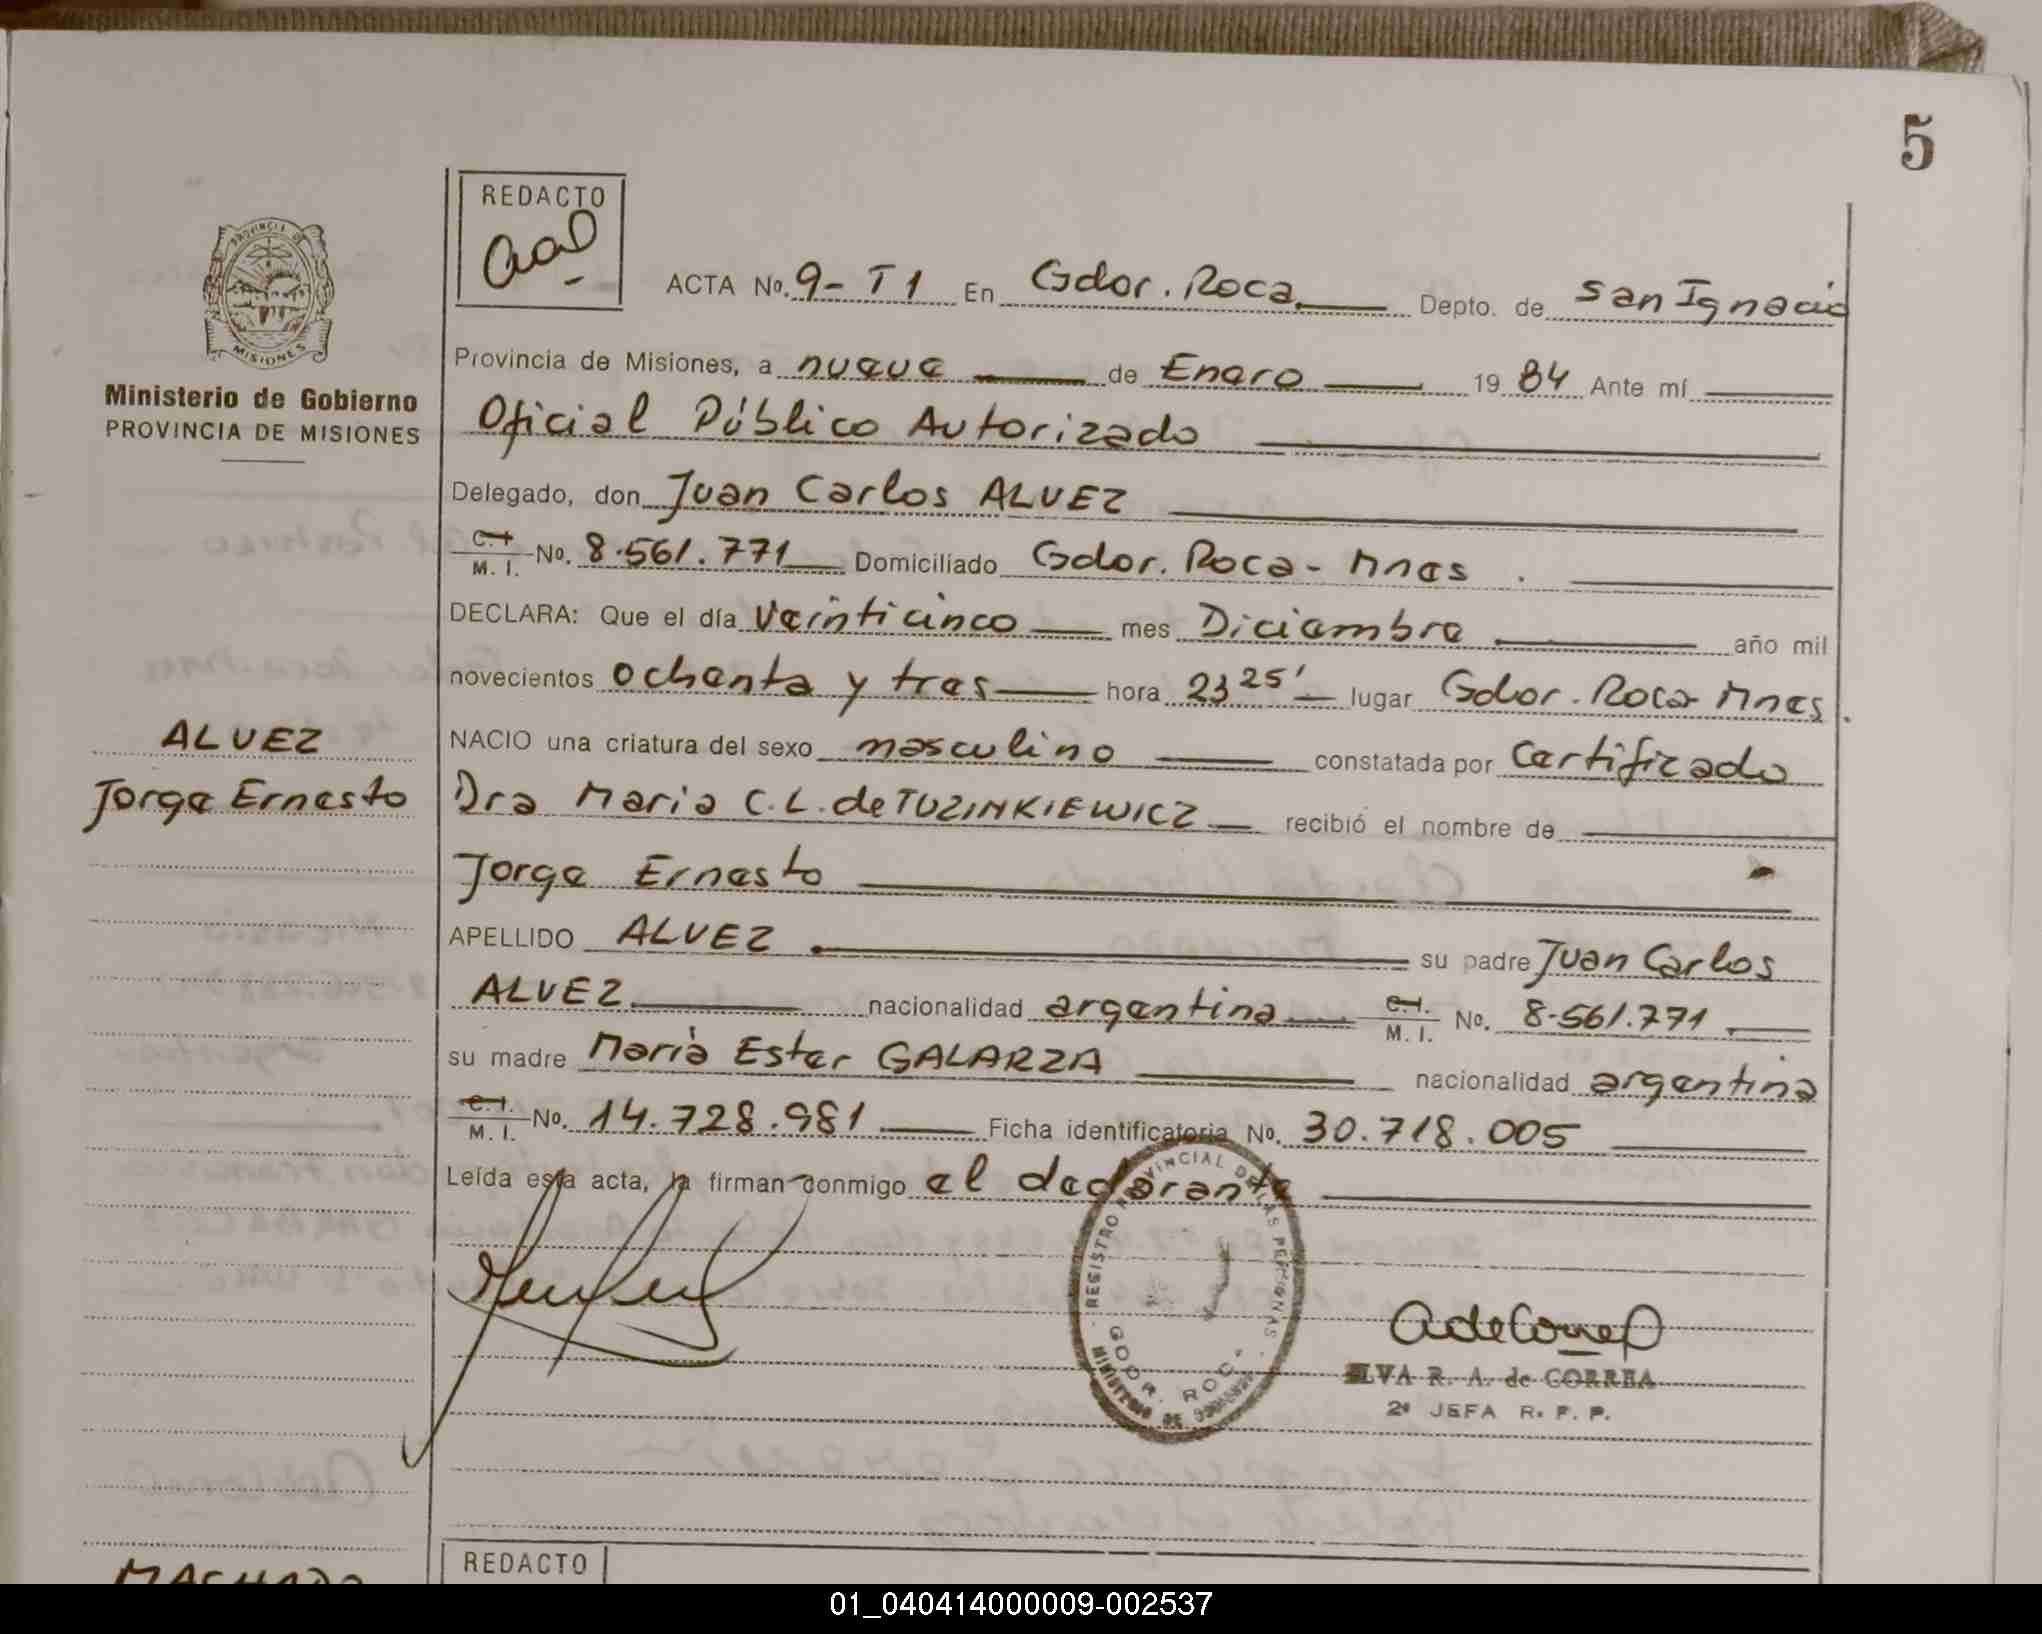 5
REDACTO
ACTA No. 9-T1 En Gdor. Roca Depto. de San Ignacio
PROVINCIA DE
MISIONES
Ministerio de Gobierno
PROVINCIA DE MISIONES
Provincia de Misiones, a nueve de Enero 1984 Ante mí
Oficial Público Autorizado
Delegado, don Juan Carlos ALVEZ
C.I. M. I. No. 8.561.771 Domiciliado Gdor. Roca - Mnes
DECLARA: Que el día Veinticinco mes Diciembre año mil
novecientos ochenta y tres hora 23 25' lugar Gdor. Roca Mnes.
ALVEZ
Jorge Ernesto
NACIO una criatura del sexo masculino constatada por Certificado
Dra Maria C. L. de TUZINKIEWICZ recibió el nombre de
Jorge Ernesto
APELLIDO ALVEZ su padre Juan Carlos
ALVEZ nacionalidad argentina C.I. M. I. No. 8.561.771
su madre María Ester GALARZA nacionalidad argentina
C.I. M. I. No. 14.728.981 Ficha identificatoria No. 30.718.005
Leída esta acta, la firman conmigo el declarante
REGISTRO PROVINCIAL DE LAS PERSONAS
GDOR. ROCA
MINISTERIO DE GOBIERNO
ELVA R. A. de CORREA
2ª JEFA R. P. P.
REDACTO
MACHADO
01_040414000009-002537